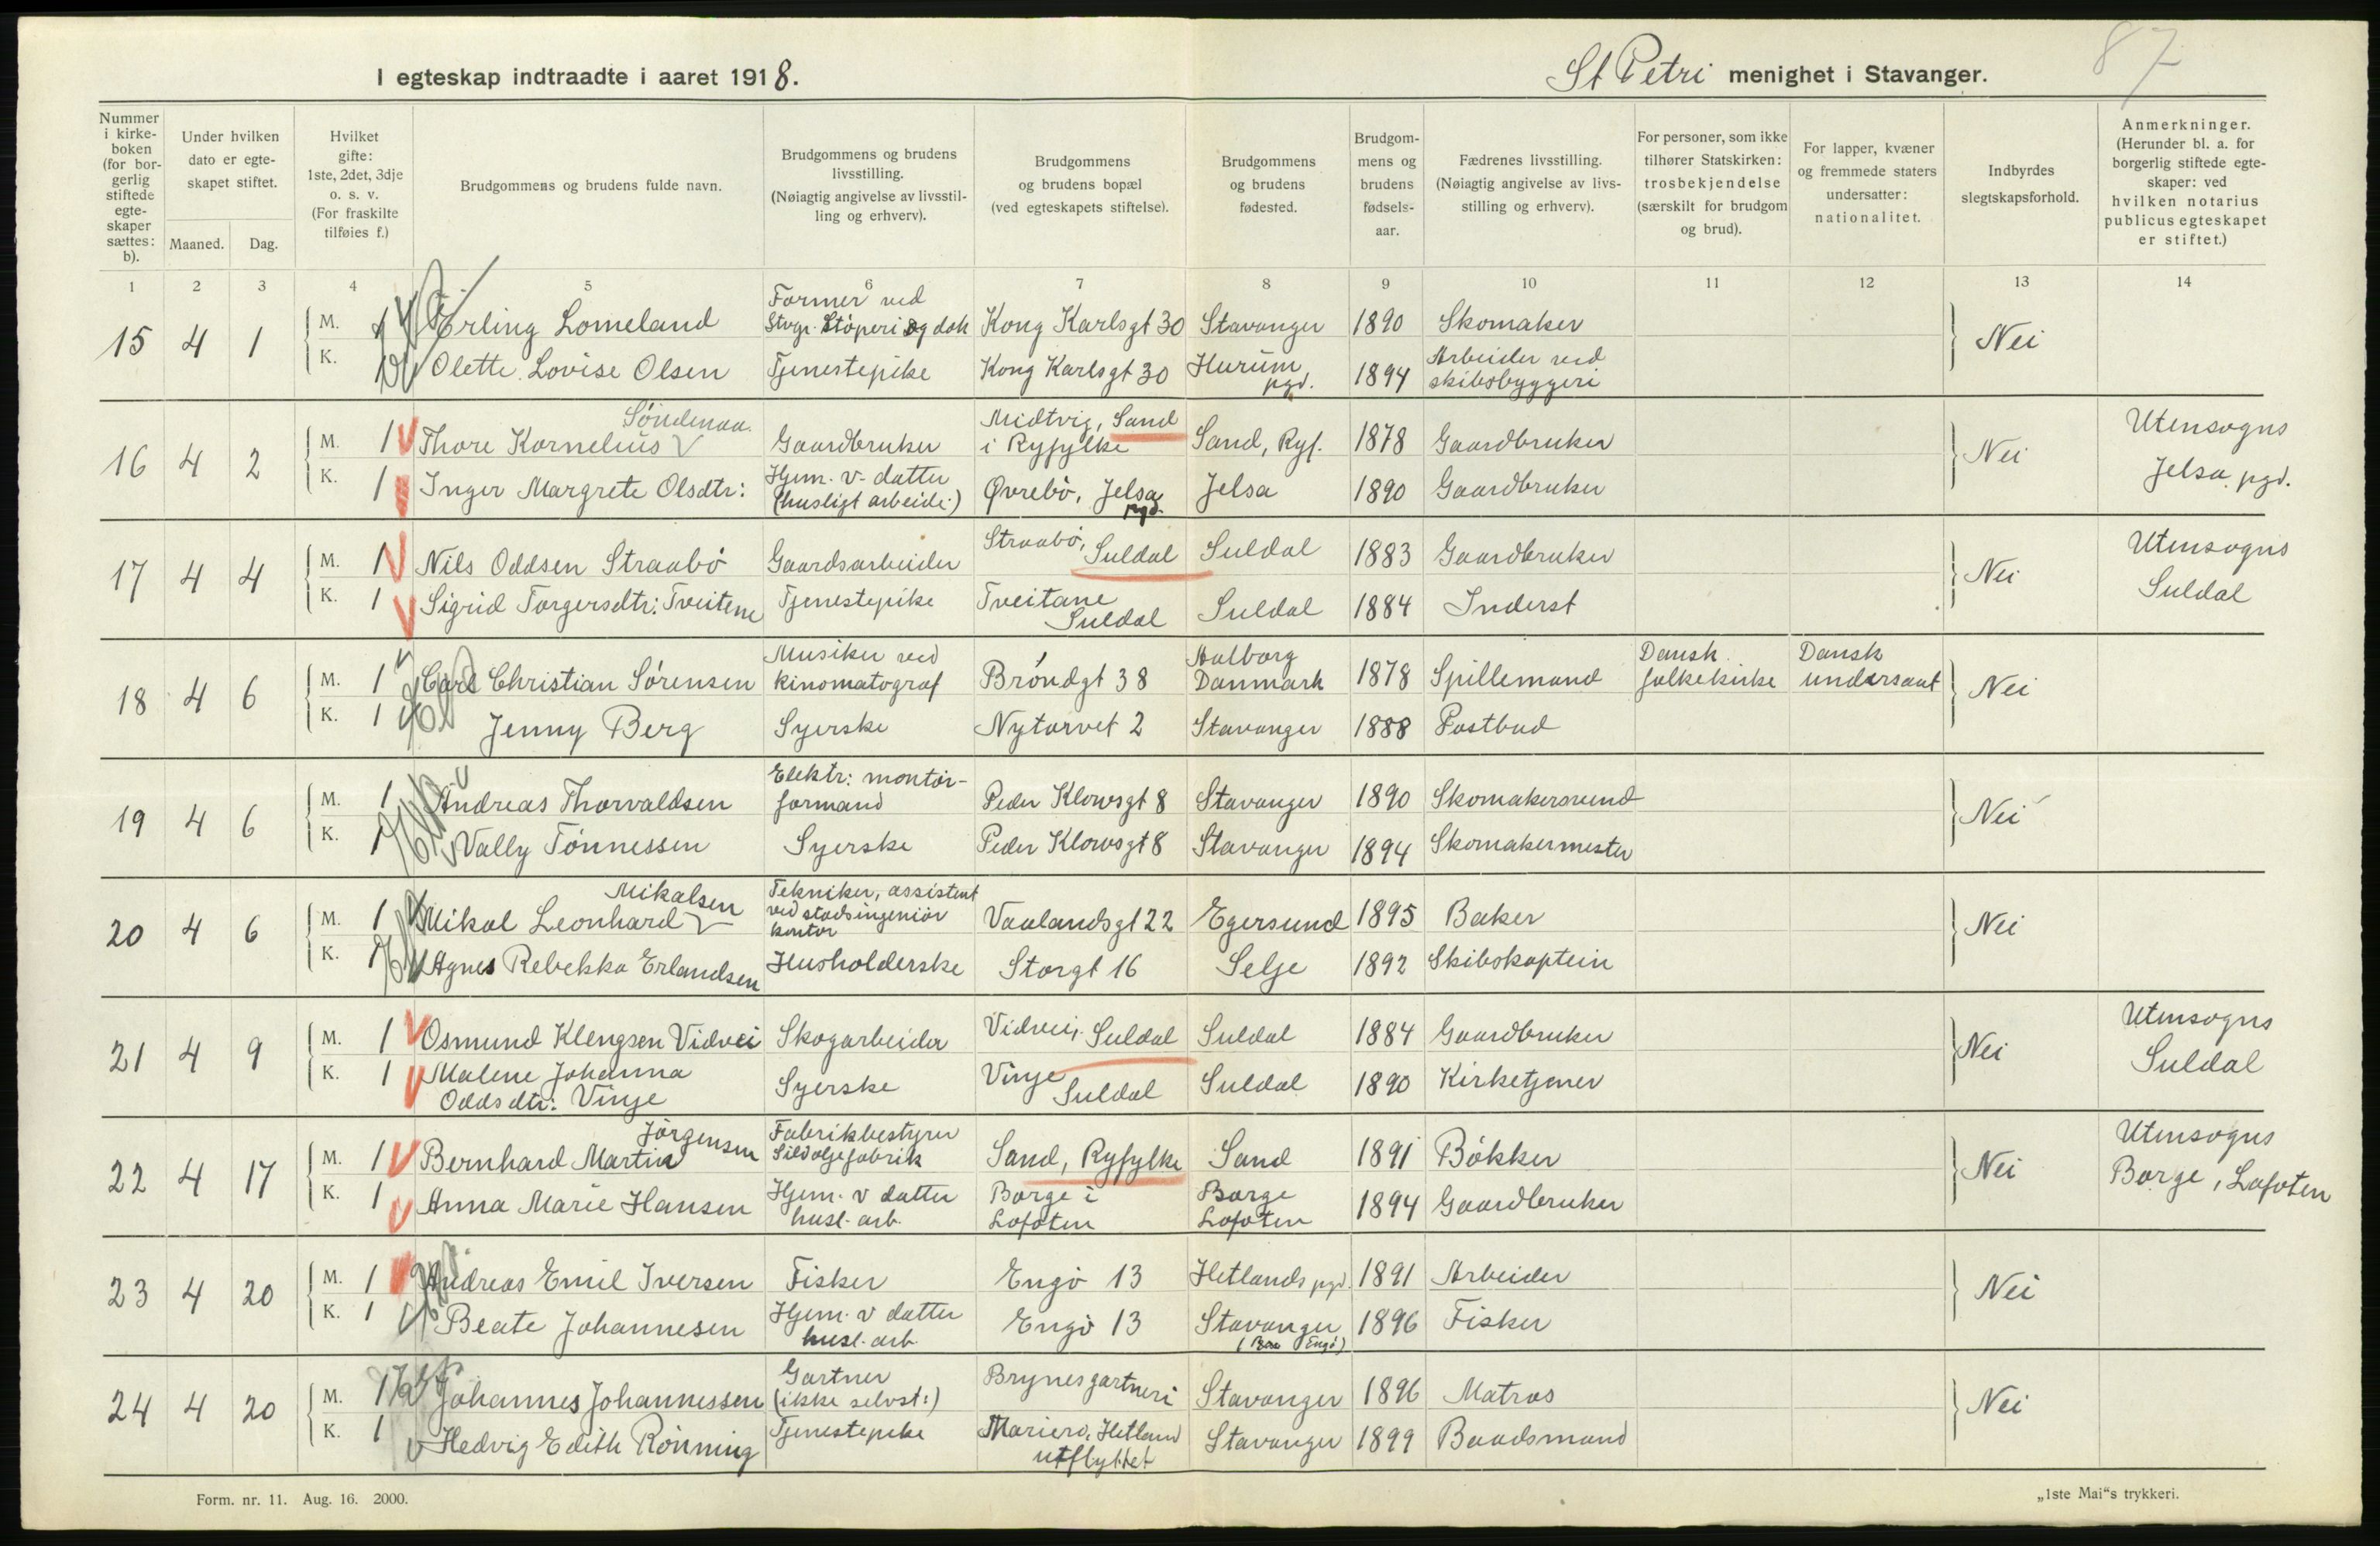 87
I egteskap indtraadte i aaret 1918.
St Petri menighet i Stavanger.
Nummer i kirkeboken (for borgerlig stiftede egteskaper sættes: b).
Under hvilken dato er egteskapet stiftet.
Maaned. Dag.
Hvilket gifte: 1ste, 2det, 3dje o. s. v. (For fraskilte tilføies f.)
Brudgommens og brudens fulde navn.
Brudgommens og brudens livsstilling. (Nøiagtig angivelse av livsstilling og erhverv).
Brudgommens og brudens bopæl (ved egteskapets stiftelse).
Brudgommens og brudens fødested.
Brudgommens og brudens fødselsaar.
Fædrenes livsstilling. (Nøiagtig angivelse av livsstilling og erhverv).
For personer, som ikke tilhører Statskirken: trosbekjendelse (særskilt for brudgom og brud).
For lapper, kvæner og fremmede staters undersatter: nationalitet.
Indbyrdes slegtskapsforhold.
Anmerkninger. (Herunder bl. a. for borgerlig stiftede egteskaper: ved hvilken notarius publicus egteskapet er stiftet.)
1 2 3 4 5 6 7 8 9 10 11 12 13 14
15 4 1 M. 1 Erling Lomeland Former ved Stvgr. Støperi og dok Kong Karlsgt 30 Stavanger 1890 Skomaker Nei
K. 1 Olette Lovise Olsen Tjenestepike Kong Karlsgt 30 Hurum pgd. 1894 Arbeider ved skibsbyggeri
16 4 2 M. 1 Thore Kornelius Søndenaa Gaardbruker Midtvig, Sand i Ryfylke Sand, Ryf. 1878 Gaardbruker Nei Utensogns Jelsa pgd.
K. 1 Inger Margrete Olsdtr: Hjem. v. datter (husligt arbeide) Øvrebø, Jelsa pgd. Jelsa 1890 Gaardbruker
17 4 4 M. 1 Nils Oddsen Straabø Gaardsarbeider Straabø, Suldal Suldal 1883 Gaardbruker Nei Utensogns Suldal
K. 1 Sigrid Torgersdtr: Tveitene Tjenestepike Tveitane Suldal Suldal 1884 Inderst
18 4 6 M. 1 Carl Christian Sørensen Musiker ved kinomatograf Brøndgt 38 Aalborg Danmark 1878 Spillemand Dansk folkekirke Dansk undersaat Nei
K. 1 Jenny Berg Syerske Nytorvet 2 Stavanger 1888 Postbud
19 4 6 M. 1 Andreas Thorvaldsen Elektr: montørformand Peder Klowsgt 8 Stavanger 1890 Skomakersvend Nei
K. 1 Vally Tønnessen Syerske Peder Klowsgt 8 Stavanger 1894 Skomakermester
20 4 6 M. 1 Mikal Leonhard Mikalsen Tekniker, assistent ved stadsingeniør kontor Vaalandsgt 22 Egersund 1895 Baker Nei
K. 1 Agnes Rebekka Erlandsen Husholderske Storgt 16 Selje 1892 Skibskaptein
21 4 9 M. 1 Osmund Klengsen Vidvei Skogarbeider Vidvei, Suldal Suldal 1884 Gaardbruker Nei Utensogns Suldal
K. 1 Malene Johanna Oddsdtr: Vinje Syerske Vinje Suldal Suldal 1890 Kirketjener
22 4 17 M. 1 Bernhard Martin Jørgensen Fabrikbestyrer Sildoljefabrik Sand, Ryfylke Sand 1891 Bøkker Nei Utensogns Borge, Lofoten
K. 1 Anna Marie Hansen Hjem. v datter husl. arb. Borge i Lofoten Borge Lofoten 1894 Gaardbruker
23 4 20 M. 1 Andreas Emil Iversen Fisker Engø 13 Hetlands pgd. 1891 Arbeider Nei
K. 1 Beate Johannesen Hjem. v datter husl. arb. Engø 13 Stavanger 1896 Fisker
24 4 20 M. 1 Johannes Johannessen Gartner (ikke selvst:) Brynes gartneri Stavanger 1896 Matros Nei
K. 1 Hedvig Edith Rønning Tjenestepike Mariero, Hetland utflyttet Stavanger 1899 Baadsmand
Form. nr. 11. Aug. 16. 2000.
„1ste Mai“s trykkeri.